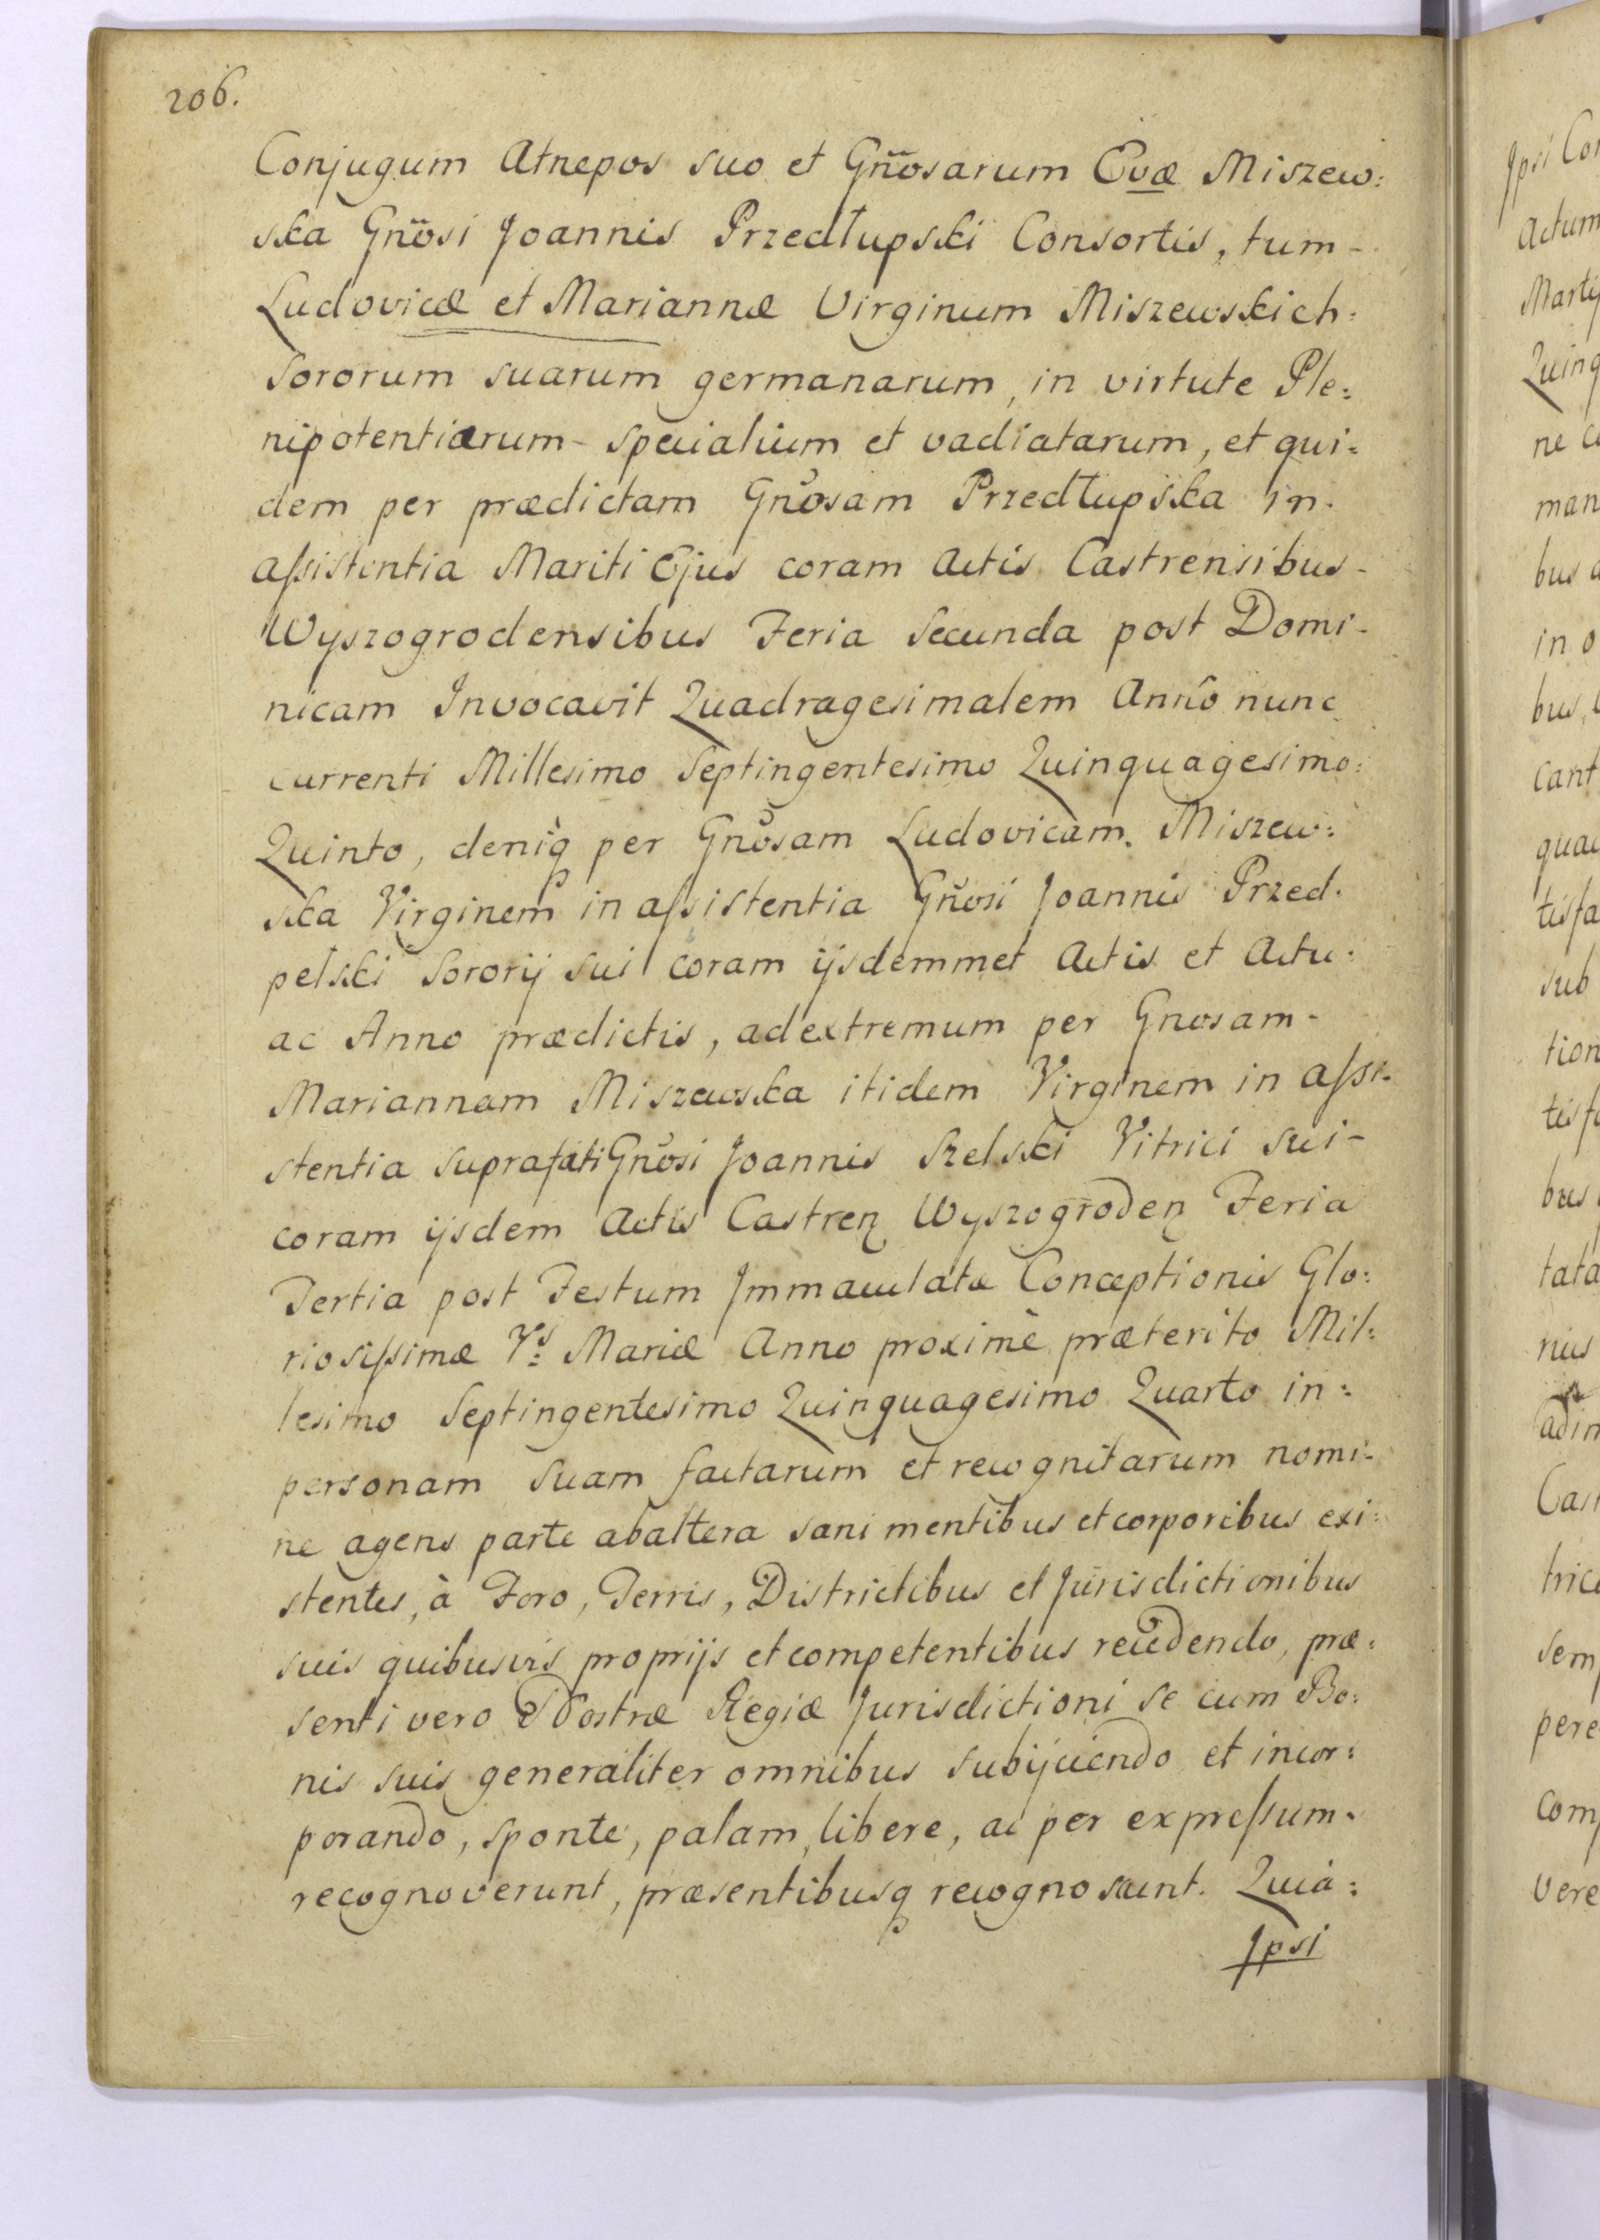 206.
Conjugum Atnepos suo et Gn̈osarum Evæ Miszew:
ska Gn̈osi Joannis Przedłupski Consortis, tum-
Ludovicæ et Mariannæ Virginum Miszewskich:
Sororum suarum germanarum, in virtute Ple:
nipotentiarum- specialium et vadiatarum, et qui:
dem per prædictam Gnosam Przedłupska in.
aſsistentia Mariti Ejus coram Actis Castrensibus-
Wyszogrodensibus Feria Secunda post Domi-
nicam Invocavit Quadragesimalem Anno nunc
currenti Millesimo Septingentesimo Quinquagesimo:
Quinto, deniq per Gnosam Ludovicam. Miszew:
ska Virginem in aſsistentia Gnosi Joannis Przed.
pelski Sororij sui coram ijsdemmet Actis et Actu:
ac Anno prædictis, adextremum per Gnosam-
Mariannam Miszewska itidem Virginem in aſsi-
stentia suprafati Gnosi Joannis Szelski Vitrici sui-
coram ijsdem Actis Castren Wyszogroden Feria
Tertia post Festum Immaculatæ Conceptionis Glo:
rioſsimæ Vs: Mariæ Anno proximè præterito Mil:
lesimo Septingentesimo Quinquagesimo Quarto in:
personam suam factarum et recognitarum nomi-
ne agens parte abaltera sani mentibus et corporibus exi:
stentes, à Foro, Terris, Districtibus et Jurisdictionibus
suis quibusvis proprijs et competentibus recedendo, præ:
senti vero Nostræ Regiæ Jurisdictioni se cum Bo:
nis suis generaliter omnibus subijciendo et incor:
porando, sponte, palam, libere, ac per expreſsum.
recognoverunt, præsentibusq recognoscunt. Quia:
Ipsi